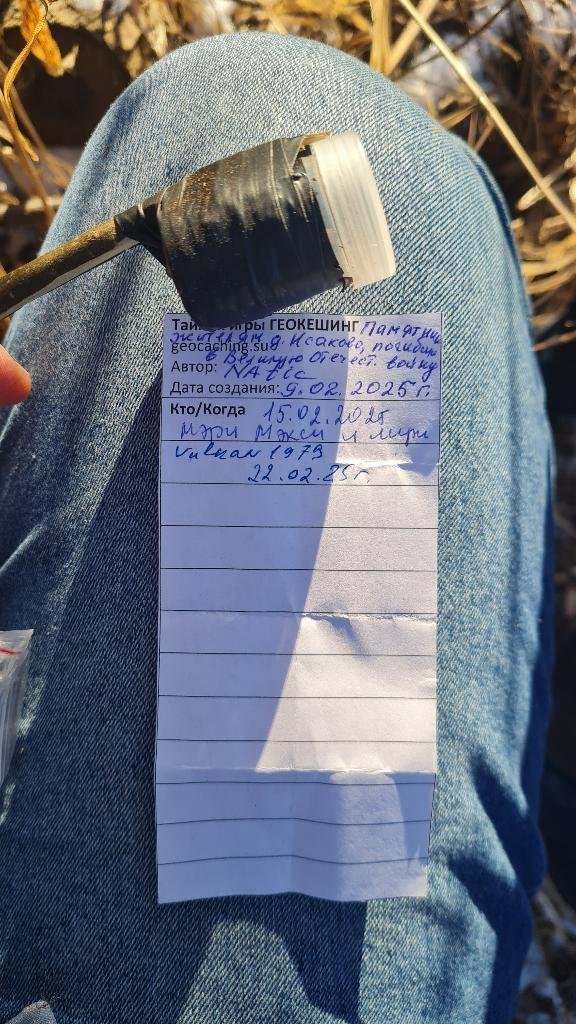 Тайник игры ГЕОКЕШИНГ Памятник
жителям д. Исаково, погибшим
geocaching.su в Великую Отечест. войну
Автор: NAtic
Дата создания: 9.02.2025г.
Кто/Когда 15.02.2025
Мэри Мэкси и Мири
Vulkan 1979
22.02.25г.